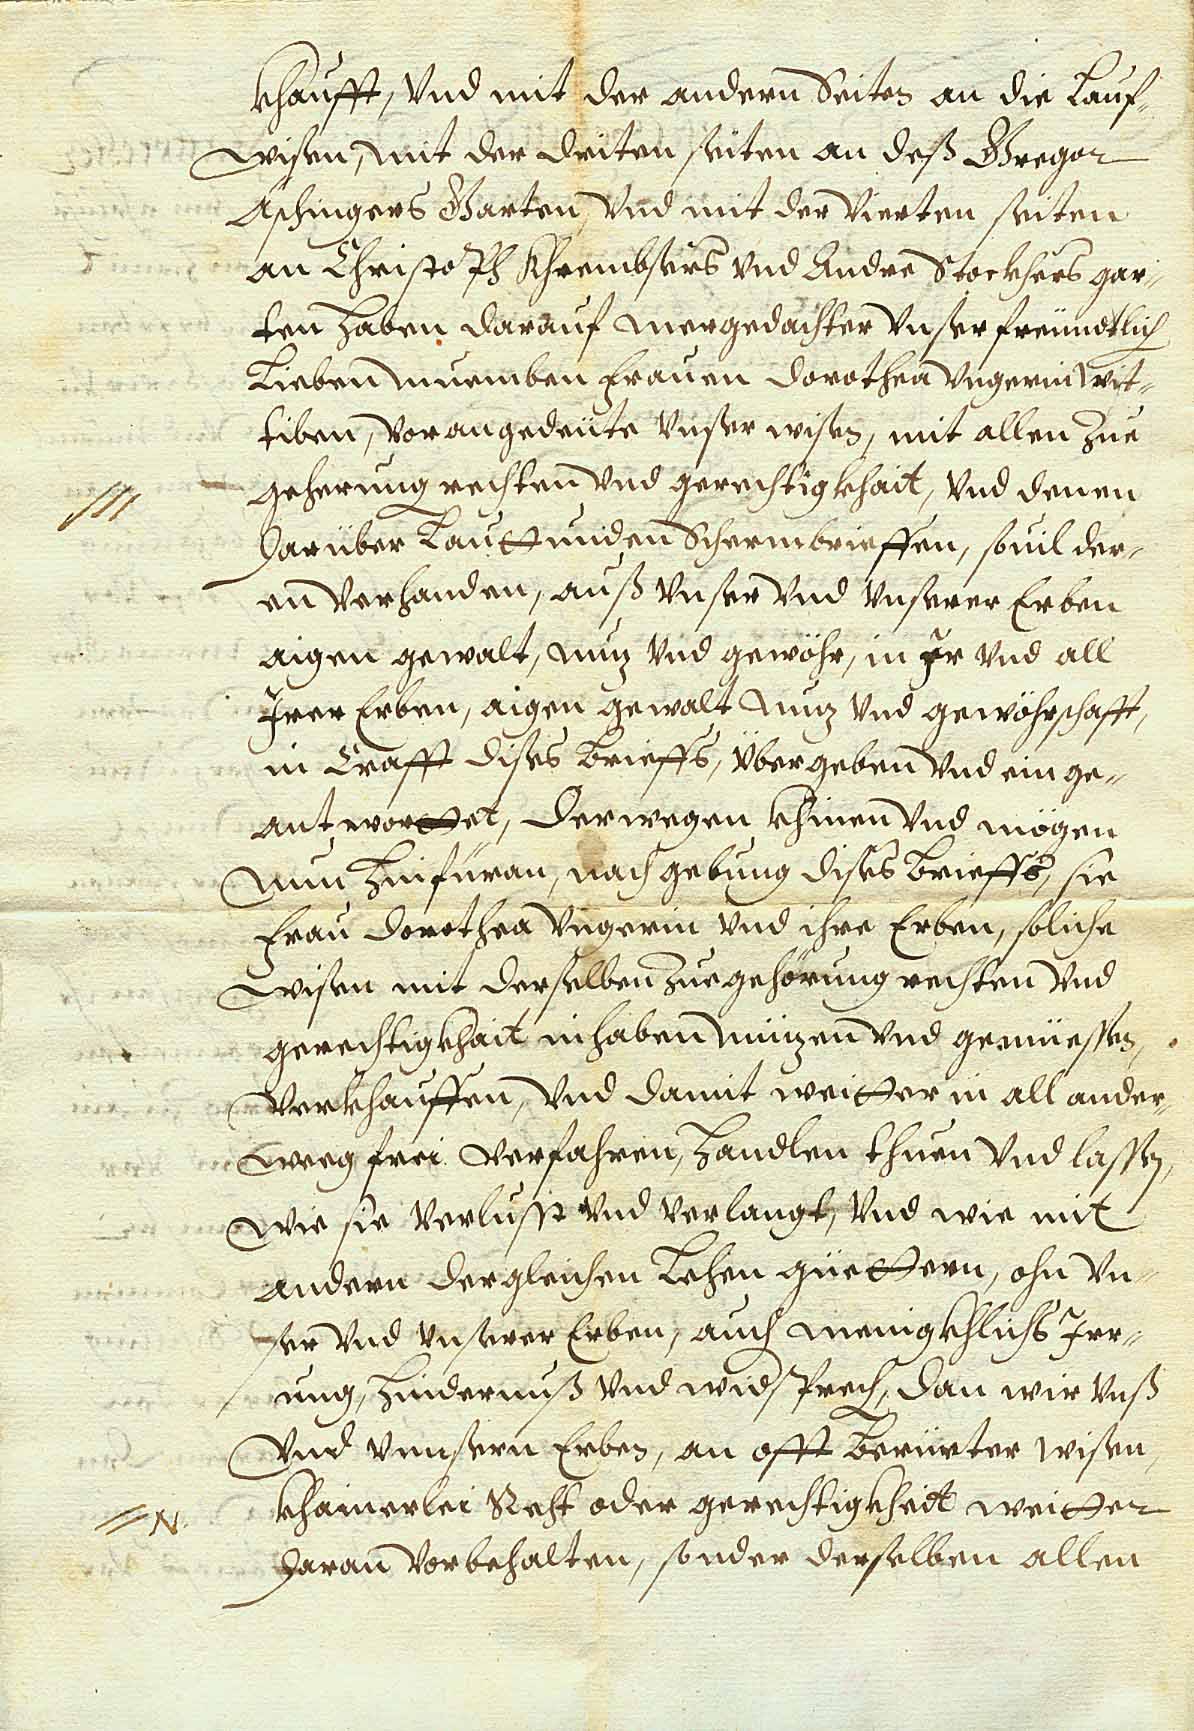 khaufft, Vnd mit der andern Seiten an die Lauf-
wisen, mit der driten seiten an deß Gregor
Aschingers Garten, Vnd mit der Vierten seiten
an Christoph Khrembsers Vnd Andre Stockhers gar-
ten haben darauf mergedachter Vnser freündtlich
Lieben muemben Frauen Dorothea Vngerin Wit-
tiben, Vorangedeüte Vnser wisen, mit allen Zue
geherung rechten Vnd gerechtigkhait, Vnd denen
III
darüber Lauttunden Schermbrieffen, souil der-
en Verhanden, auß Vnser Vnd Vnserer Erben
aigen gewalt, nuz Vnd gewöhr, in Ir Vnd all
Irer Erben, aigen gewalt nuz Vnd gewöhrschafft,
in Crafft dises Brieffs, Übergeben Vnd einge-
antworttet, Derwegen khinen Vnd mögen
nun hinfüran, nach gebung dises Brieffs, sie
Frau Dorothea Vngerin Vnd ihre Erben, soliche
wisen mit derselben Zuegehörung rechten Vnd
gerechtigkhait inhaben nüzen Vnd genüessen,
Verkhauffen, Vnd damit weitter in all ander-
weeg frei Verfahren, handlen thuen Vnd lassen,
wie sie Verlusst Vnd Verlangt, Vnd wie mit
andern dergleichen Lehen güettern, ohn Vn-
ser Vnd Vnserer Erben, auch menigkhlichs Irr-
ung, hindernuß Vnd widsprech, dan wir Vnß
Vnd Vnnsern Erben, an offt Berürter wisen,
khainerlei Recht oder gerechtigkheit weitter
N.
daran Vorbehalten, sonder derselben allen